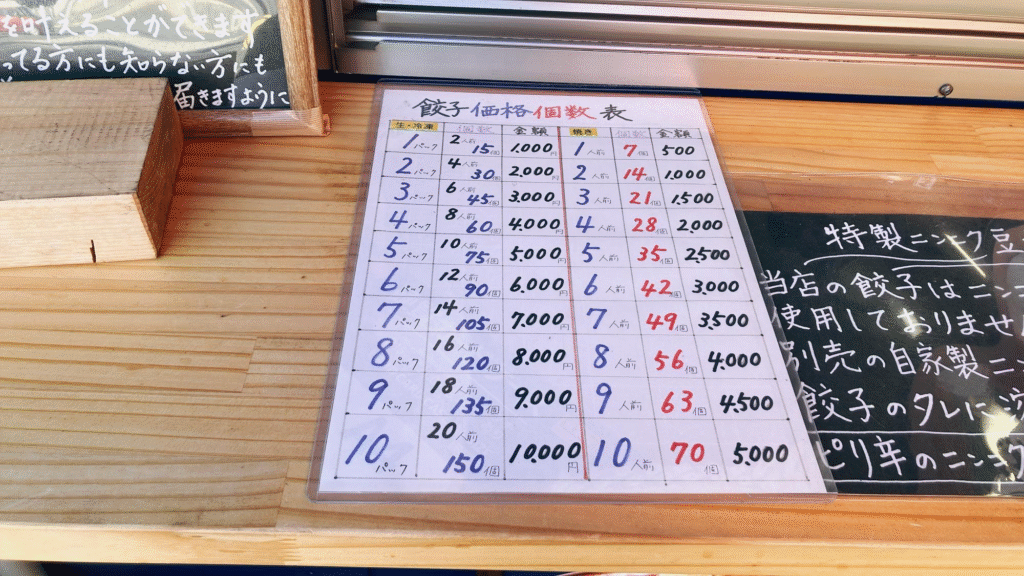 を叶えることができます
ってる方にも知らない方にも
届きますように
餃子価格個数表
生・冷凍 個数 金額 焼き 個数 金額
1パック 2人前 15個 1.000円 1人前 7個 500
2パック 4人前 30個 2,000円 2人前 14個 1,000
3パック 6人前 45個 3,000円 3人前 21個 1,500
4パック 8人前 60個 4,000円 4人前 28個 2,000
5パック 10人前 75個 5,000円 5人前 35個 2,500
6パック 12人前 90個 6,000円 6人前 42個 3,000
7パック 14人前 105個 7,000円 7人前 49個 3,500
8パック 16人前 120個 8,000円 8人前 56個 4,000
9パック 18人前 135個 9,000円 9人前 63個 4,500
10パック 20人前 150個 10,000円 10人前 70個 5,000
特製ニンニク豆
当店の餃子はニン
使用しておりませ
別売の自家製ニン
餃子のタレに
ピリ辛のニンニク